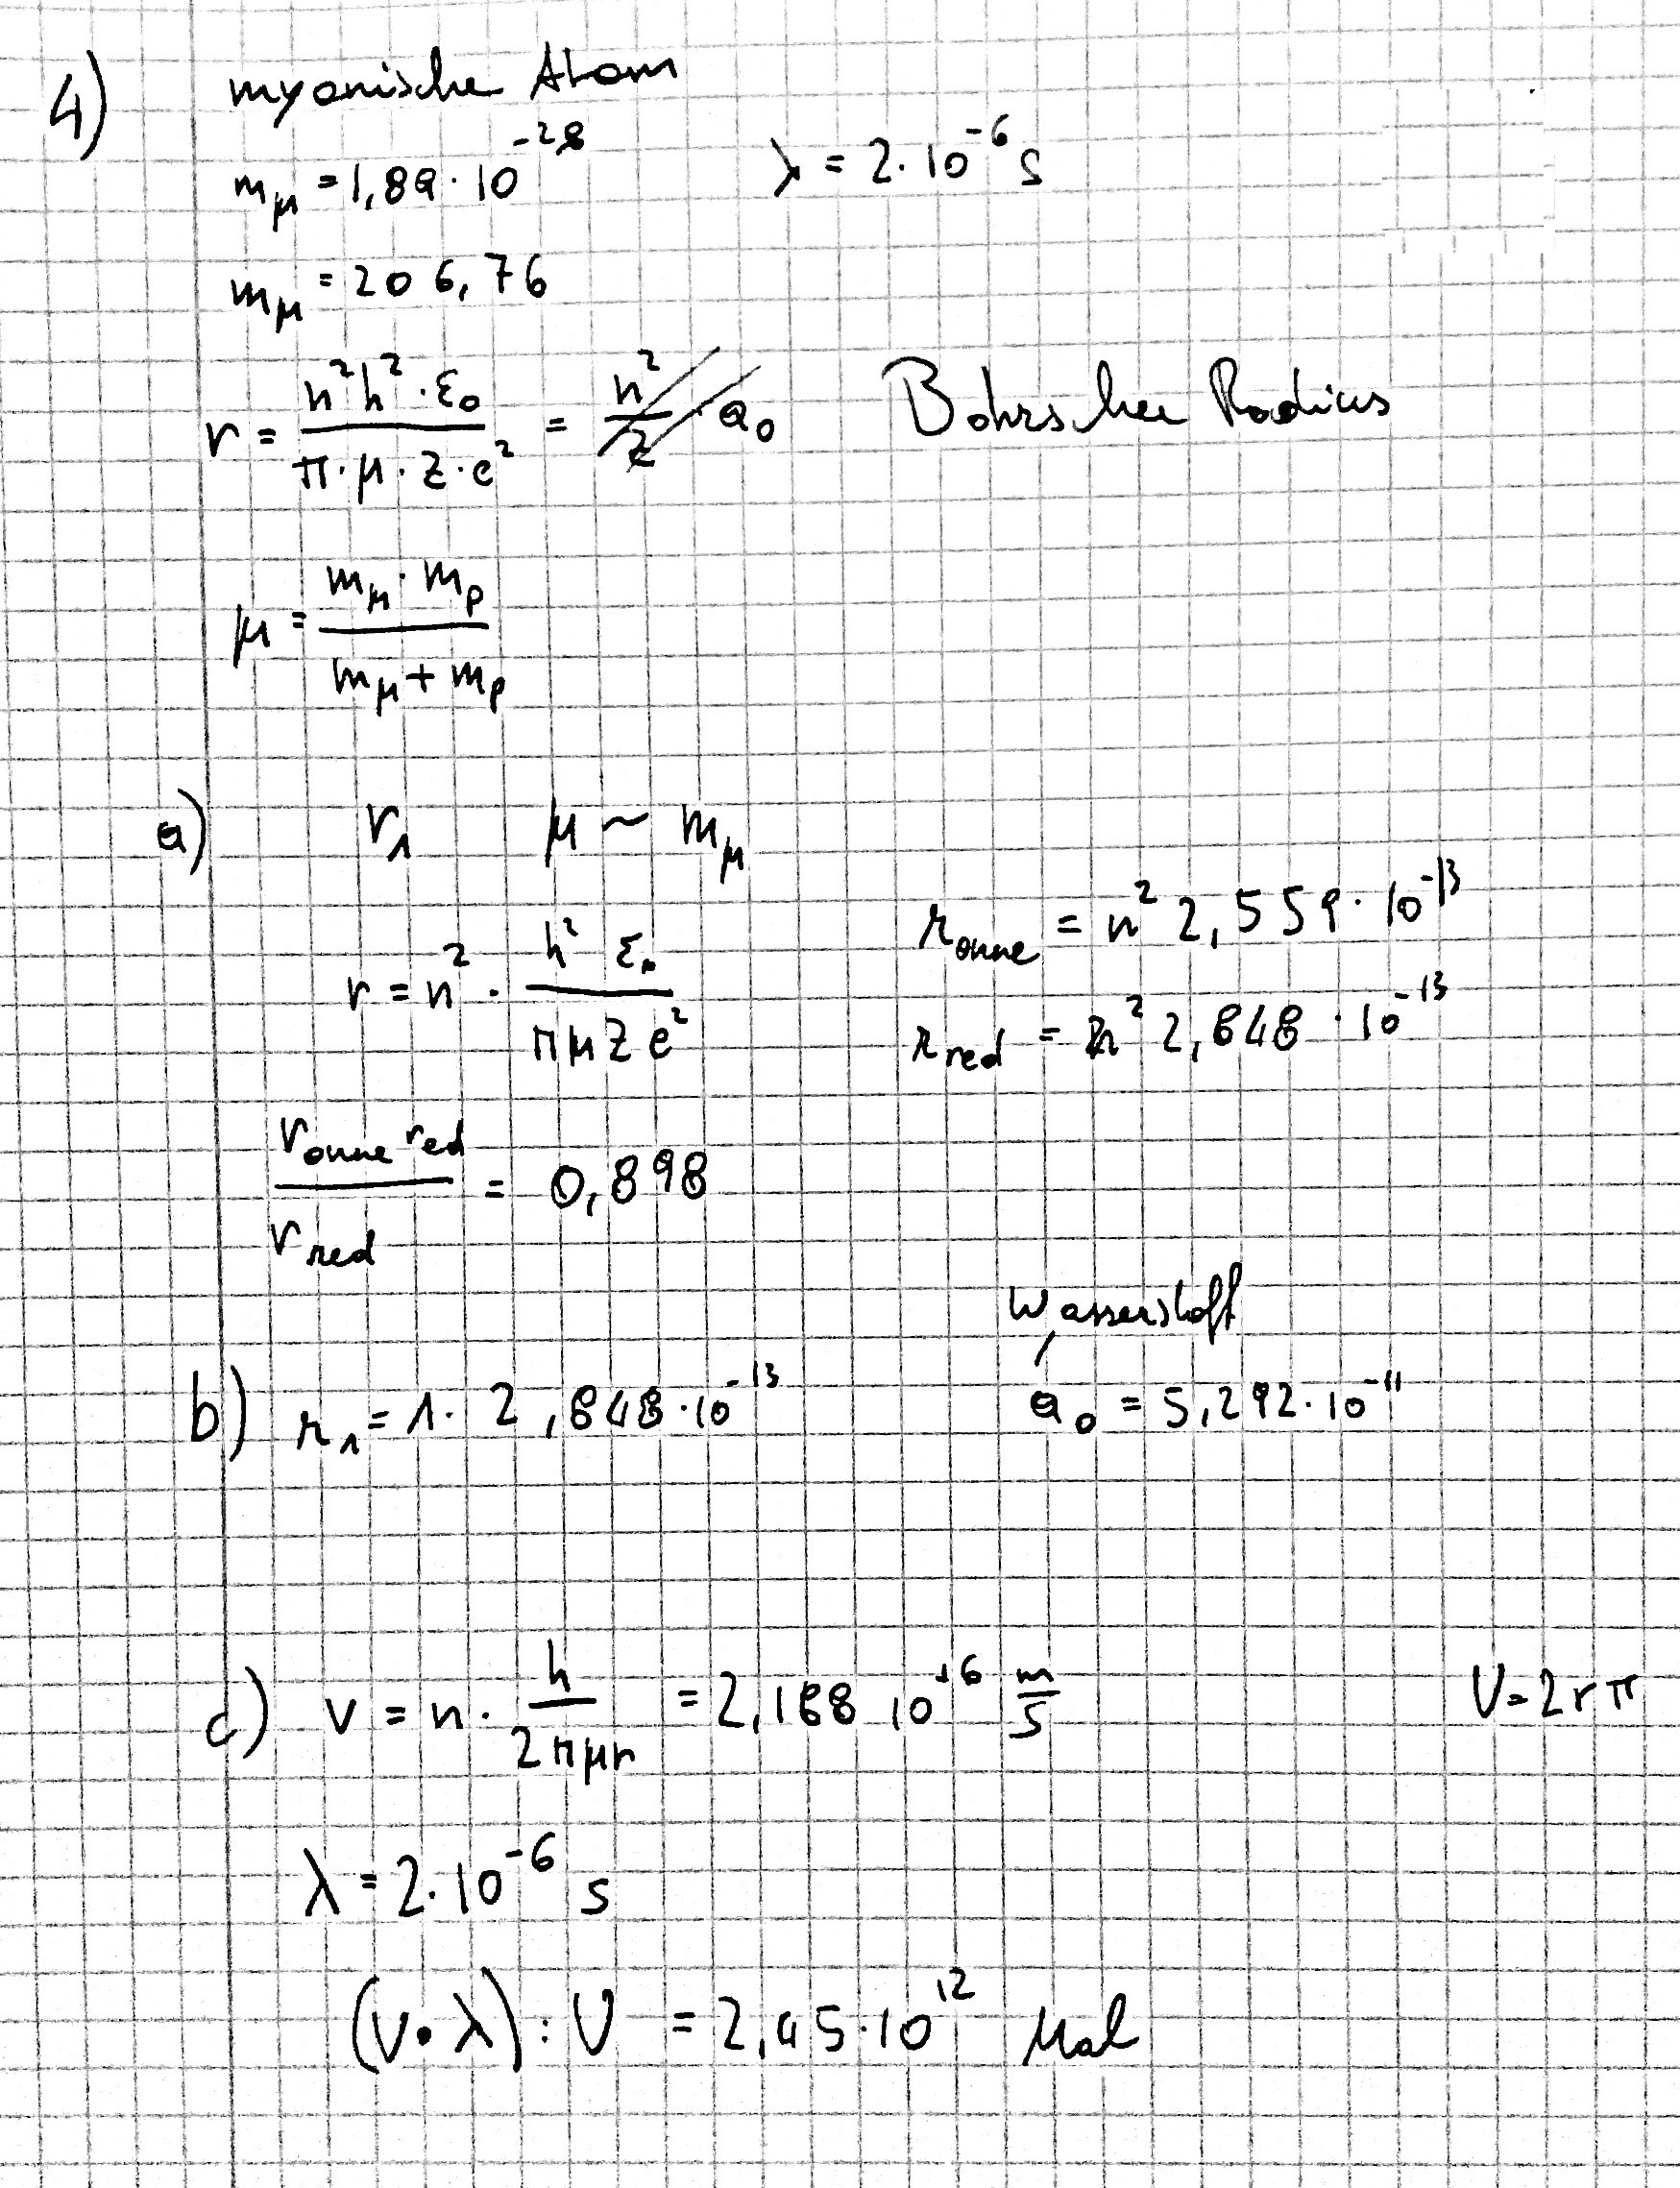 4) myonische Atom
mμ = 1,89 · 10^-28 λ = 2 · 10^-6 s
mμ = 206,76
r = n²h² · ε₀ / π · μ · z · e² = n²/z · a₀ Bohrscher Radius
μ = mμ · mp / mμ + mp
a) r₁ μ ~ mμ
r = n² · h² ε₀ / π μ z e²
r_ohne = n² 2,559 · 10^-13
r_red = n² 2,848 · 10^-13
r_ohne red / r_red = 0,898
Wasserstoff
b) r₁ = 1 · 2,848 · 10^-13 a₀ = 5,292 · 10^-11
c) v = n · h / 2πμr = 2,188 10^+6 m/s U = 2rπ
λ = 2 · 10^-6 s
(v · λ) : U = 2,45 · 10^12 Mal